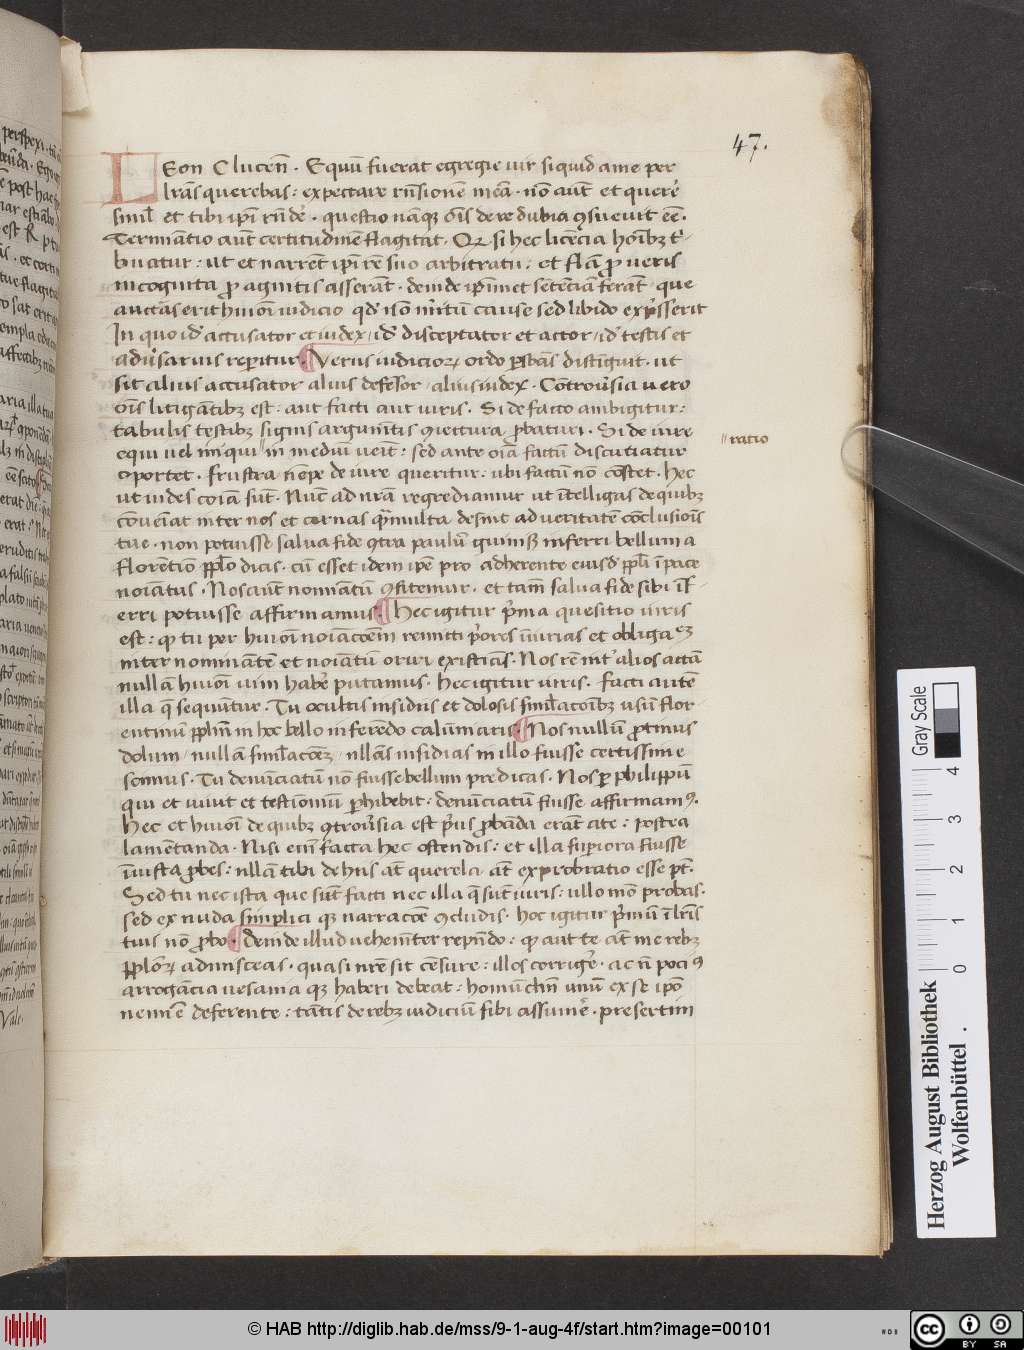 47.
LEon Clucen̄ . Equū fuerat egregie uir si quid a me per
l̄ras querebas : expectare rn̄sionē meā . nō aūt et querē
simil' et tibi ip̄i rn̄dē . questio nāq; oīs de re dubia ꝯsueuit eē .
Termīatio aūt certitudinē flagitat . Qꝫ si hec licēcia hoībꝫ t͛i-
buatur : ut et narrēt ip̄i rē suo arbitratu : et fl̄ā ꝓ ueris
incognita ꝓ agnitis asserāt . deinde ip̄imet sētēciā ferāt que
auctās erit huiōi iudicio qd' nō
In quo id' accusator et iudex / id' disceptator et actor / id' testis et
aduersarius reperitur . Verus iudicioꝝ ordo ꝑsōas distīguit . ut
sit alius accusator alius defēsor / alius iudex . Cōtrou͛sia uero
oīs litigātibꝫ est : aut facti aut iuris . Si de facto ambigitur :
tabulis testibꝫ signis argum̄tis ꝯiectura ꝓbatur . Si de iure
equi uel iniqui // in mediū ueīt : sed ante oīa factū discutiatur
// ratio
oportet . frustra nēpe de iure queritur : ubi factū nō cōstet . Hec
ut uides coīa sūt . Nūc ad nrām regrediamur ut ītelligas de quibꝫ
cōueīat inter nos et cernas qm̄ multa desint ad ueritatē cōclusioīs
tue . non potuisse salua fide ꝯtra paulū guinis' inferri bellum a
florētino ppl̄o dicis . cū esset idem ipē pro adherente eiusd' ppl̄i ī pace
noīatus . Nos aūt nominatū ꝯfitemur . et tam̄ salua fide sibi īf-
erri potuisse affirmamus . Hec igitur p͛ma quesitio iuris
est : qꝫ tu per huiōi noīacōem remitti p͛ores iniurias et obliga
inter nominātē et noīatū oriri existīas . Nos rē int͛ alios actā
nullā huiōi uim habē putamus . hec igitur iuris . facti autē
illa q̄ sequūtur . Tu occultis insidiis et dolosis simil'acōibꝫ usū flor-
entinū pplm̄ in hoc bello inferēdo calūmiaris . Nos nullū ꝓrsus
dolum / nullā simil'acōeꝫ / nll̄as insidias in illo fuisse certissime
scimus . Tu denūciatū nō fuisse bellum predicas . Nos ꝑ philippū
qui et uiuit et testimoniū ꝑhibebit : denūciatū fuisse affirmam9 .
Hec et huiōi de quibꝫ ꝯtrou͛sia est p͛us ꝓbāda erāt a te : postea
lamētanda . Nisi em̄ facta hec ostendis : et illa sup͛iora fuisse
iniusta ꝓbes : nllā tibi de hiis āt querela / āt exprobratio esse pt̄ .
Sed tu nec ista que sūt facti nec illa q̄ sūt iuris : ullo mō probas .
sed ex nuda simplici qꝫ narracōe ꝯcludis . hoc igitur p͛mū ī l̄ris
tuis nō ꝓbo . Deinde illud uehem̄ter rep̄ndo : qꝫ aut te āt me rebꝫ
pplōꝝ admisceas . quasi nrē sit cēsure : illos corrigē . ac n̄ poci9
arrogācia uesania qꝫ haberi debeat : homūclm̄ unū ex se ip̄o
neminē deferente : tātis de rebꝫ iudiciū sibi assumē . presertim
Herzog August Bibliothek
Wolfenbüttel .
Gray Scale
0 1 2 3 4
© HAB http://diglib.hab.de/mss/9-1-aug-4f/start.htm?image=00101
WDB
cc BY SA